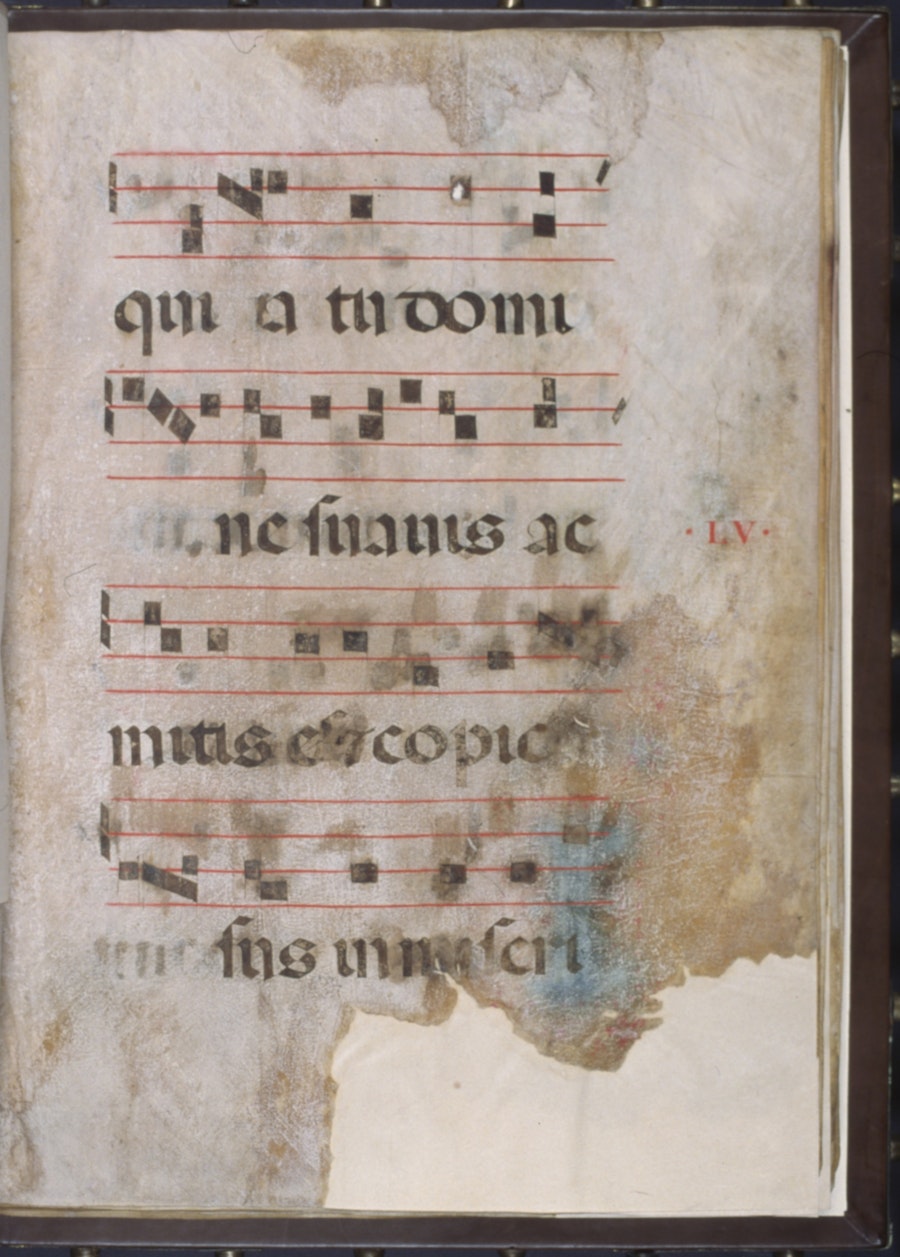 qui a tu domi
ne suauis ac
· LV ·
mitis es ⁊ copio
sus in miseri